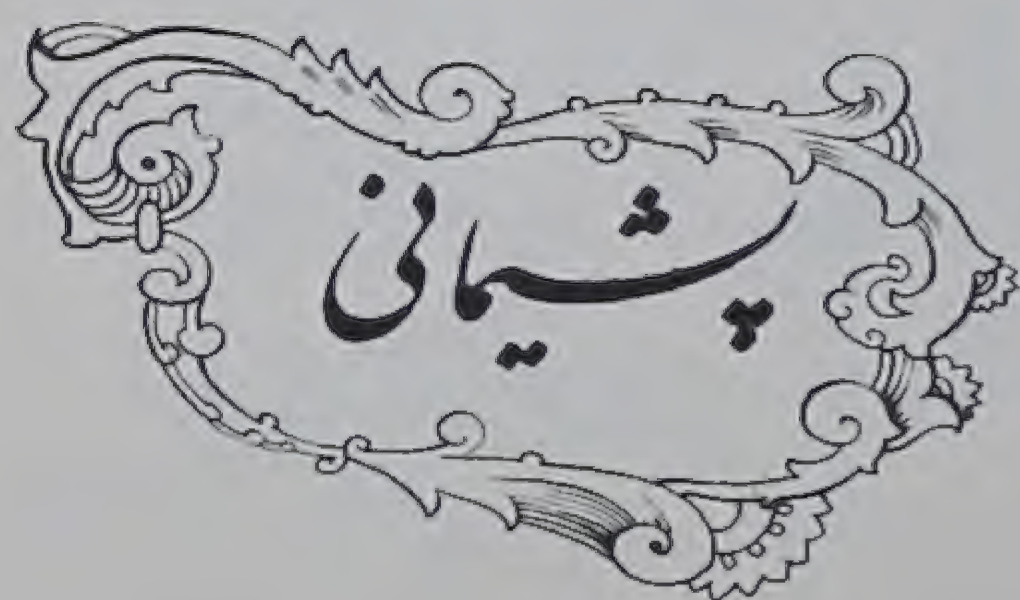 پشیمانی